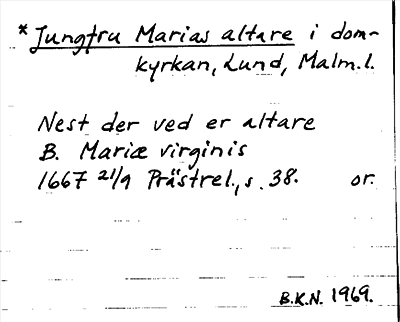 * Jungfru Marias altare i dom-
kyrkan, Lund, Malm.l.
Nest der ved er altare
B. Mariæ virginis
1667 21/9 Prästrel., s. 38. or.
B.K.N. 1969.